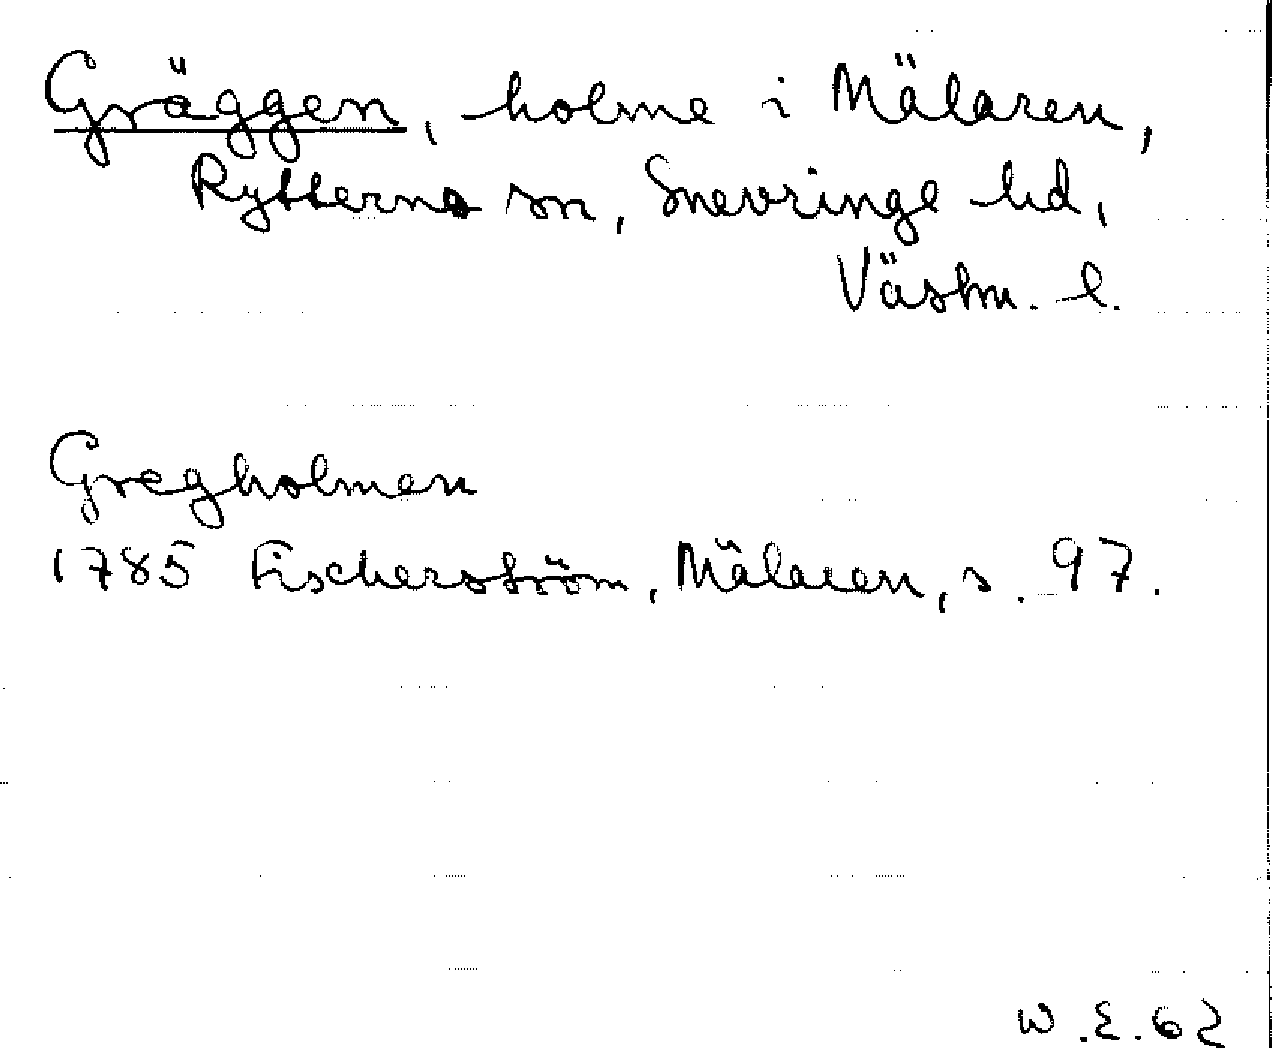 Gräggen, holme i Mälaren,
Rytterns sn, Snevringe hd,
Västm. l.
Gregholmen
1785 Fischerström, Mälaren, s. 97.
W.E.62